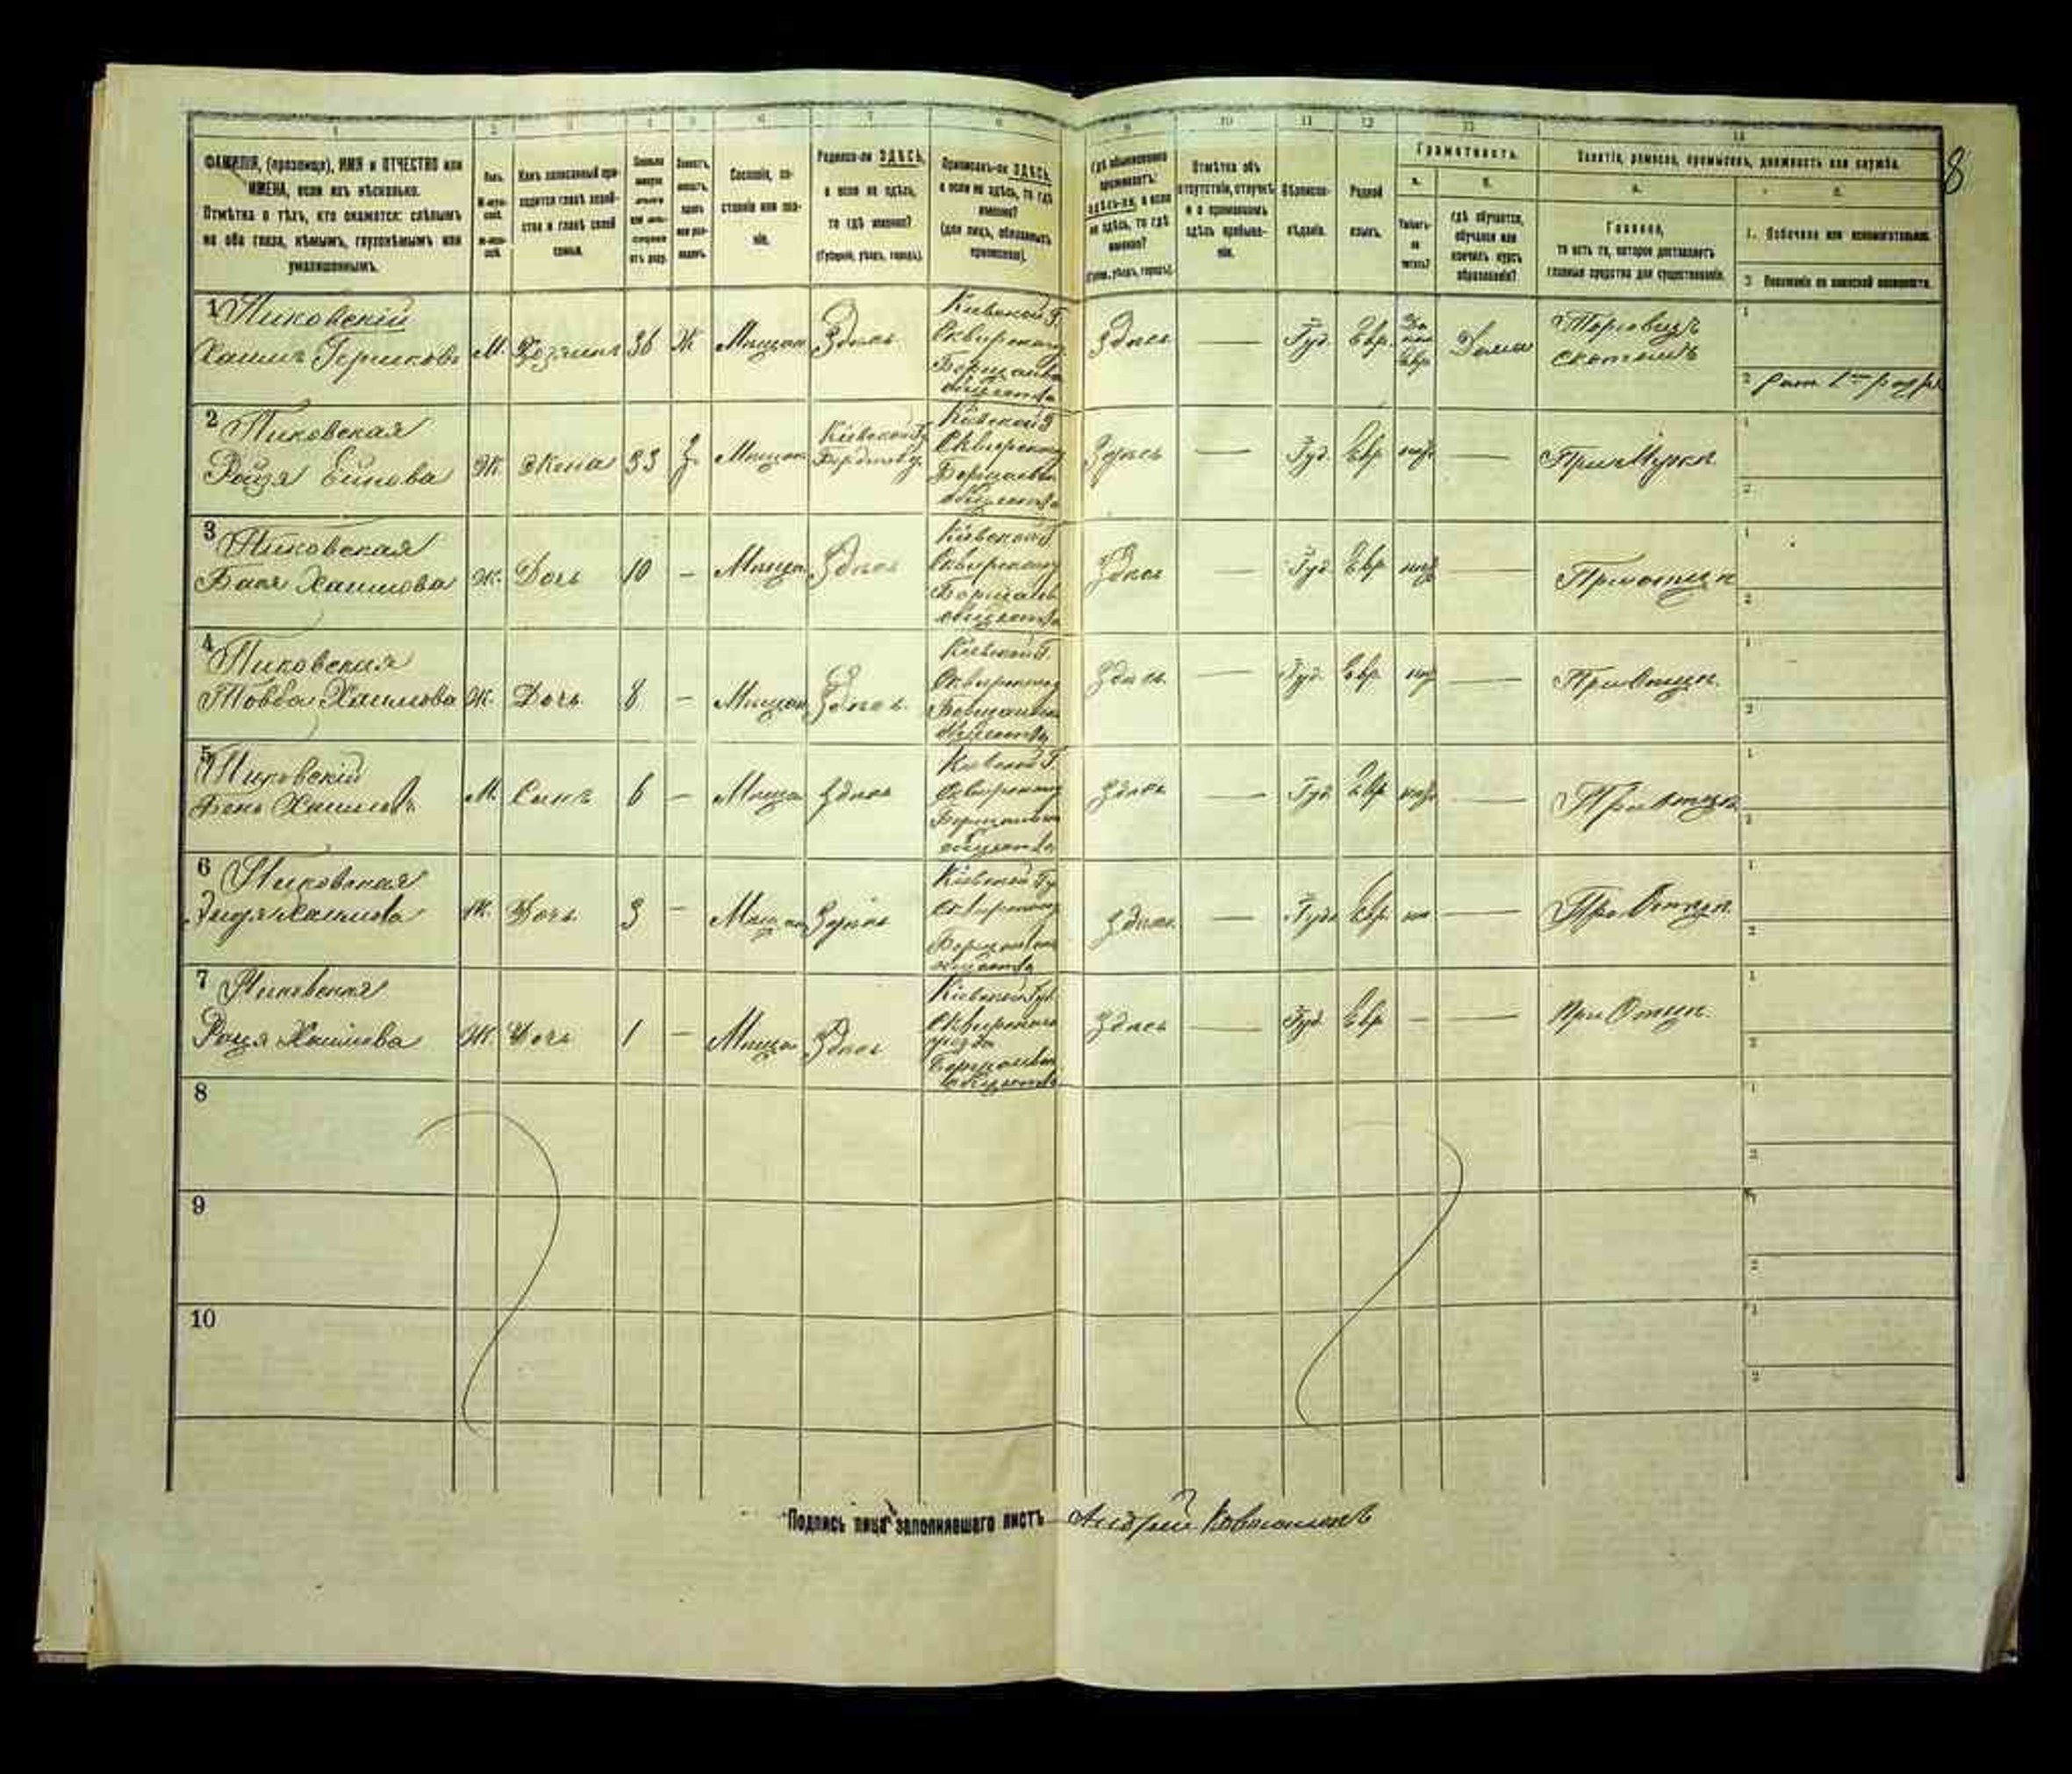 8
1 2 3 4 5 6 7 8 9 10 11 12 13 14
ФАМИЛІЯ, (прозвище), ИМЯ и ОТЧЕСТВО или
ИМЕНА, если ихъ нѣсколько.
Отмѣтка о тѣхъ, кто окажется: слѣпымъ
на оба глаза, нѣмымъ, глухонѣмымъ или
умалишеннымъ.
Полъ.
Какъ записанный при-
ходится главѣ хозяй-
ства и главѣ своей
семьи.
Сословіе, со-
стояніе или зва-
ніе.
Родился-ли ЗДѢСЬ,
а если не здѣсь,
то гдѣ именно?
(Губернія, уѣздъ, городъ).
Приписанъ-ли ЗДѢСЬ,
а если не здѣсь, то гдѣ
именно?
(для лицъ, обязанныхъ
припискою).
Гдѣ обыкновенно
проживаетъ:
здѣсь-ли, а если
не здѣсь, то гдѣ
именно?
(Губерн., уѣздъ, городъ).
Отмѣтка объ
отсутствіи, отлучкѣ
и о временномъ
здѣсь пребыва-
ніи.
Вѣроиспо-
вѣданіе.
Родной
языкъ.
Грамотность.
а.
Умѣетъ-
ли
читать?
б.
гдѣ обучается,
обучался или
кончилъ курсъ
образованія?
Занятіе, ремесло, промыселъ, должность или служба.
а.
Главное,
то есть то, которое доставляетъ
главныя средства для существованія.
б.
1. Побочное или вспомогательное.
2. Положеніе по воинской повинности.
1 Пиковскій
Хаимъ Гершковъ М. Хозяинъ 36 Ж Мѣщан Здѣсь
Кіевской Г.
Сквирскаго
Борщаев
общества
Здѣсь Іуд. Евр. Дома
Торговецъ
скотомъ
1
2
2 Пиковская
Ройзя Ж. Жена 33 З. Мѣщан
Кіевской Г.
Бердич у.
Кіевской Г
Сквирскаго
Борщаев
общества
Здѣсь — Іуд. Евр нѣт — При Мужѣ
1
2
3 Пиковская
Бася Хаимова Ж. Дочь 10 — Мѣщан Здѣсь
Кіевской Г.
Сквирскаго
Борщаев
общества
Здѣсь — Іуд Евр нѣт При отцѣ
1
2
4 Пиковская
Товба Хаимова Ж. Дочь 8 — Мѣщан Здѣсь
Кіевской Г.
Сквирскаго
Борщаев
общества
Здѣсь — Іуд. Евр. нѣт — При Отцѣ.
1
2
5 Пиковскій
Бень Хаимовъ М. Сынъ 6 — Мѣщан Здѣсь
Кіевской Г
Сквирскаго
Борщаев
общества
Здѣсь — Іуд Евр нѣт — При Отцѣ
1
2
6 Пиковская
Хаимова Ж. Дочь 3 — Мѣщан Здѣсь
Кіевской Гу
Сквирскаго
Борщаев
общества
Здѣсь — Іуд Евр. — При Отцѣ
1
2
7 Пиковская
Хаимова Ж. Дочь 1 — Мѣщан Здѣсь
Кіевской Губ.
Сквирскаго
уѣзда
Борщаев
общества
Здѣсь — Іуд. Евр — — При Отцѣ.
1
2
8
1
2
9
1
2
10
1
2
Подпись лица заполнявшаго листъ Андрей